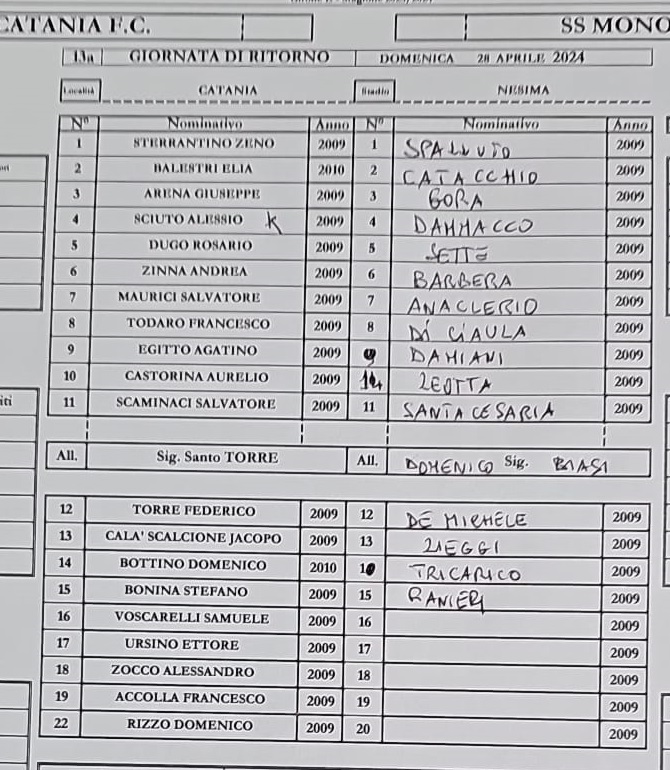 CATANIA F.C. SS MONO
13a GIORNATA DI RITORNO DOMENICA 28 APRILE 2024
Località CATANIA Stadio NESIMA
N° Nominativo Anno N° Nominativo Anno
1 STERRANTINO ZENO 2009 1 SPALLUTO 2009
2 BALESTRI ELIA 2010 2 CATACCHIO 2009
3 ARENA GIUSEPPE 2009 3 GORA 2009
4 SCIUTO ALESSIO K 2009 4 DAMMACCO 2009
5 DUGO ROSARIO 2009 5 SETTE 2009
6 ZINNA ANDREA 2009 6 BARBERA 2009
7 MAURICI SALVATORE 2009 7 ANACLERIO 2009
8 TODARO FRANCESCO 2009 8 DI CIAULA 2009
9 EGITTO AGATINO 2009 9 DAMIANI 2009
10 CASTORINA AURELIO 2009 14 LEOTTA 2009
11 SCAMINACI SALVATORE 2009 11 SANTA CESARIA 2009
All. Sig. Santo TORRE All. DOMENICO Sig. BIASI
12 TORRE FEDERICO 2009 12 DE MICHELE 2009
13 CALA' SCALCIONE JACOPO 2009 13 LIEGGI 2009
14 BOTTINO DOMENICO 2010 10 TRICARICO 2009
15 BONINA STEFANO 2009 15 RANIERI 2009
16 VOSCARELLI SAMUELE 2009 16 2009
17 URSINO ETTORE 2009 17 2009
18 ZOCCO ALESSANDRO 2009 18 2009
19 ACCOLLA FRANCESCO 2009 19 2009
22 RIZZO DOMENICO 2009 20 2009